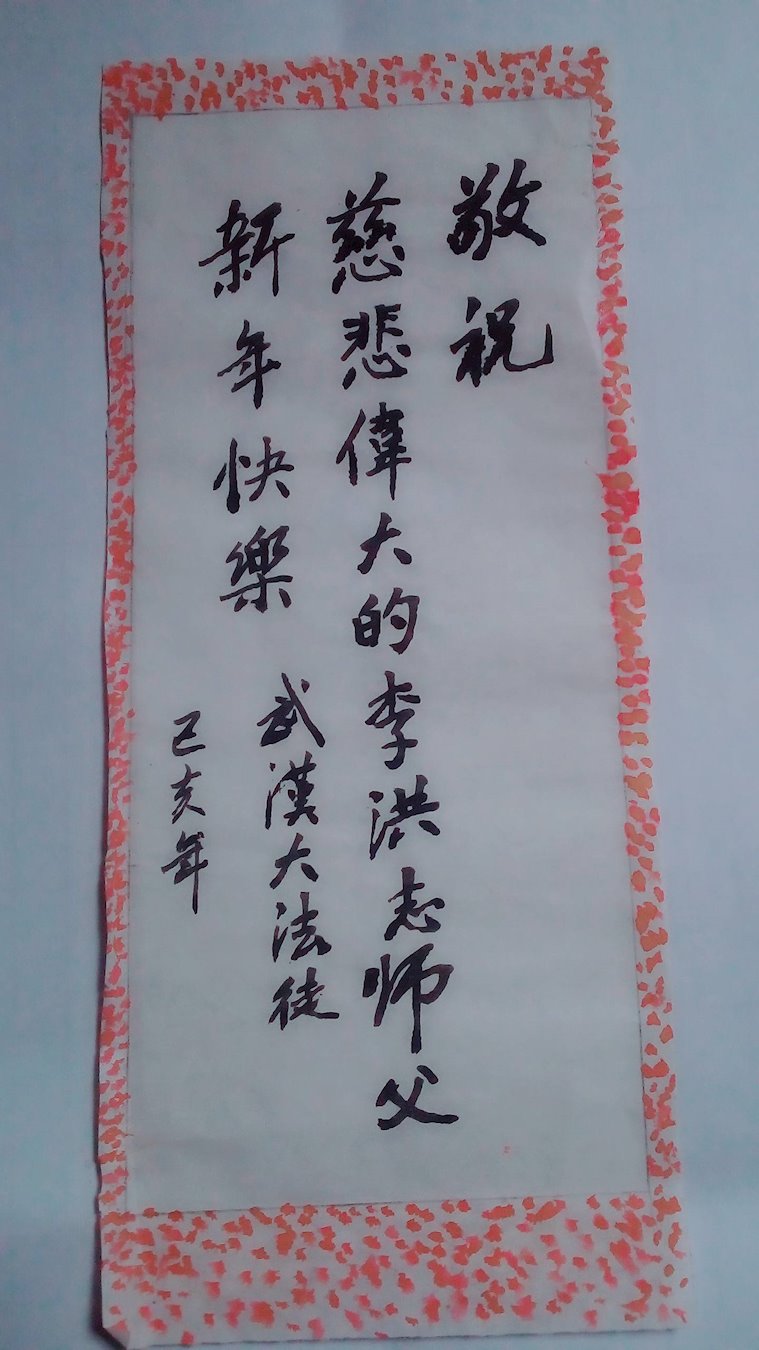 敬祝
慈悲偉大的李洪志师父
新年快樂
武漢大法徒
己亥年